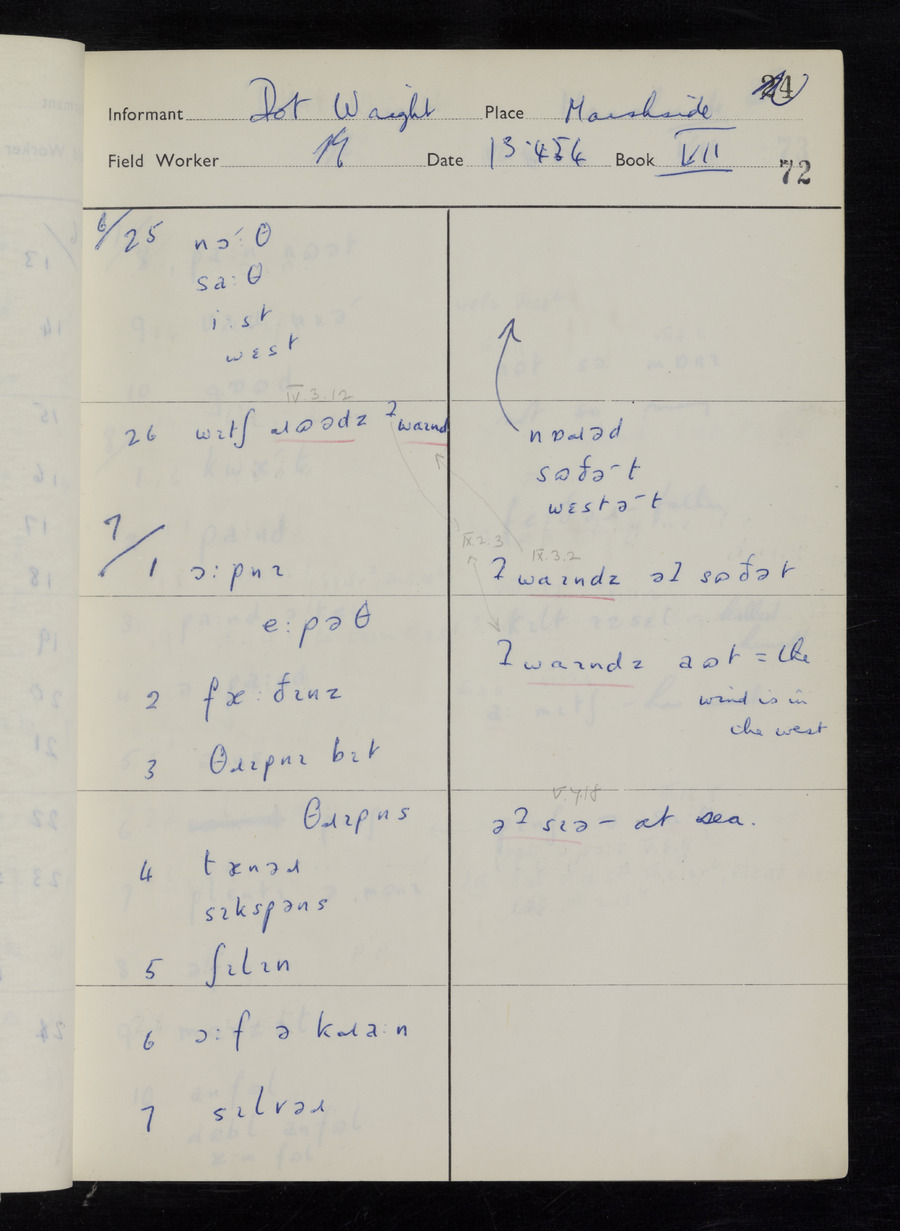 24
Informant Dot Waight Place Marshside
Field Worker Date 13.4.54 Book VII
72
6/25 nɔ:θ
sa:θ
i:st
wɛst
IV.3.12
26 wɪtʃ ɹɷədz ʔwaɪnd
nɒɹəd
sɷðə-t
wɛstə-t
IX.2.3
IX.3.2
7/1 ɔ:pnɪ
ʔwaɪndz əʔ sɷðət
e:pəθ
ʔwaɪndz aɷt = the
wind is in
the west
2 fæ:ðɪnz
3 θɹɪpnɪ bɪt
V.7.18
θɹɪpns
əʔ sɪə - at sea.
4 tænəɹ
sɪkspəns
5 ʃɪlɪn
6 ɔ:f ə kɹa:n
7 sɪlvəɹ